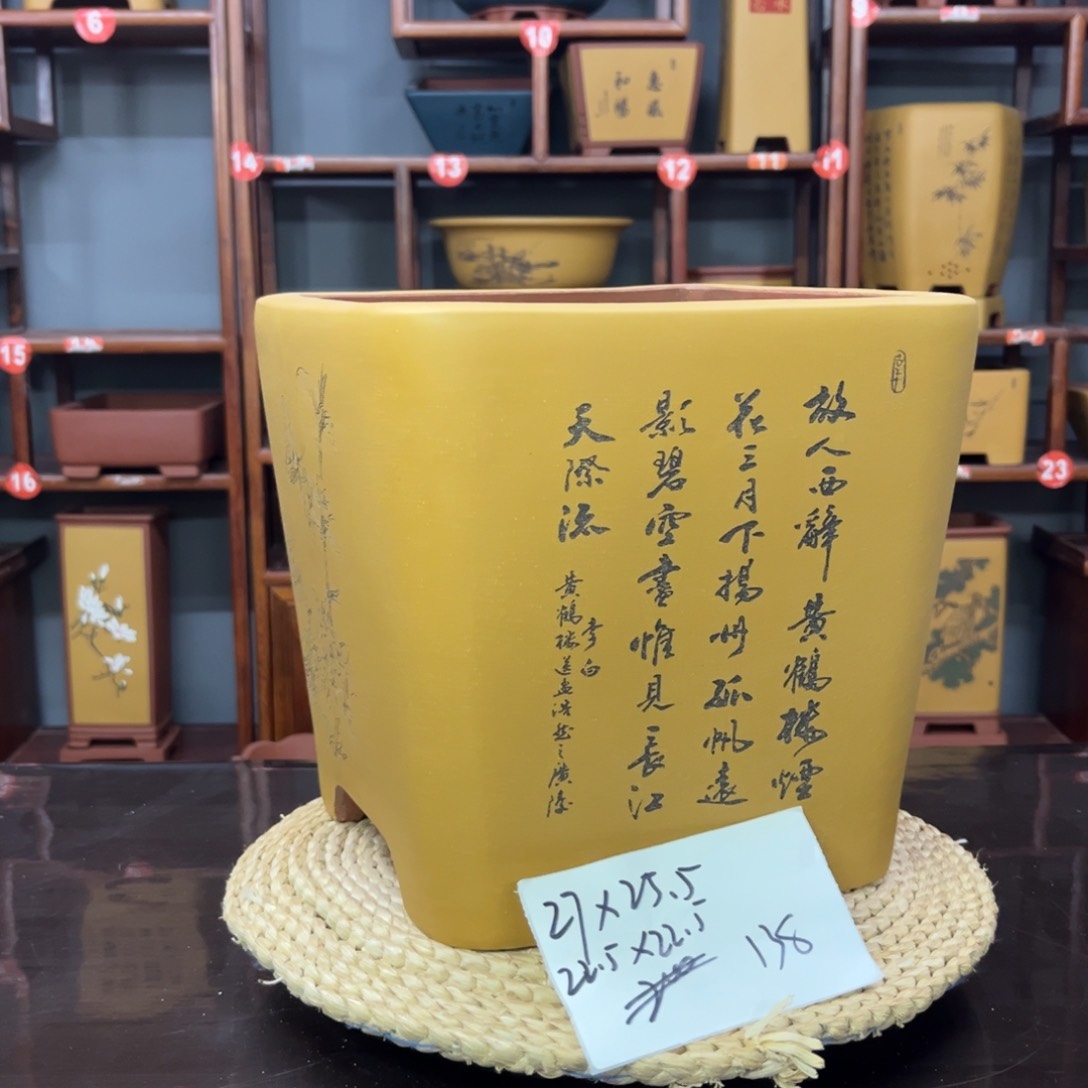 故人西辭黄鶴楼煙
花三月下揚州孤帆遠
影碧空盡惟見長江
天際流
李白
黄鶴楼送孟浩然之廣陵
27×25.5
22.5×22.5
138
6
10
9
14
13
12
11
11
15
16
23